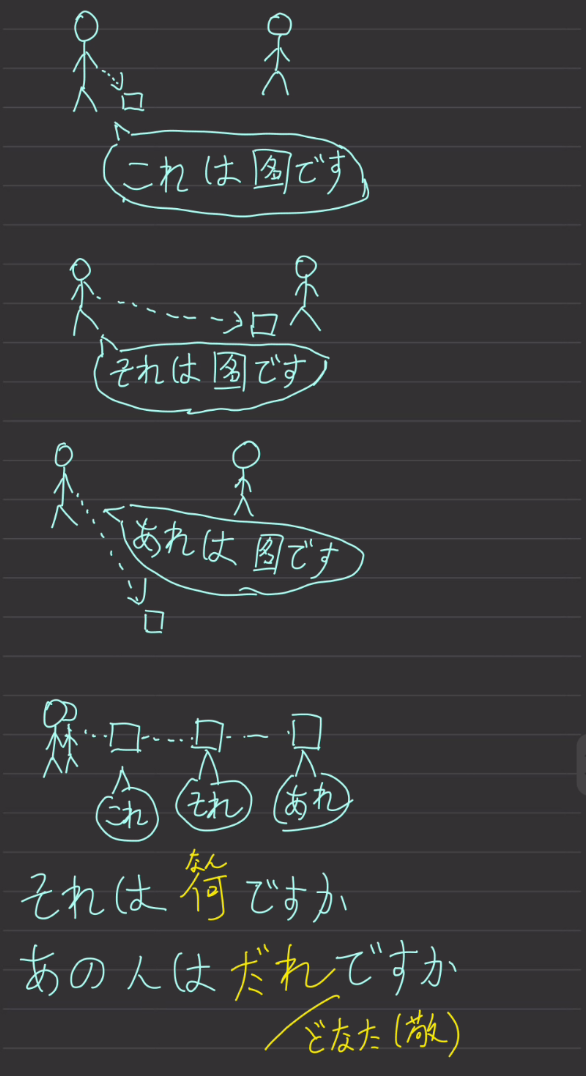 これは名です
それは名です
あれは名です
これ それ あれ
なん
それは何ですか
あの人はだれですか
どなた(敬)